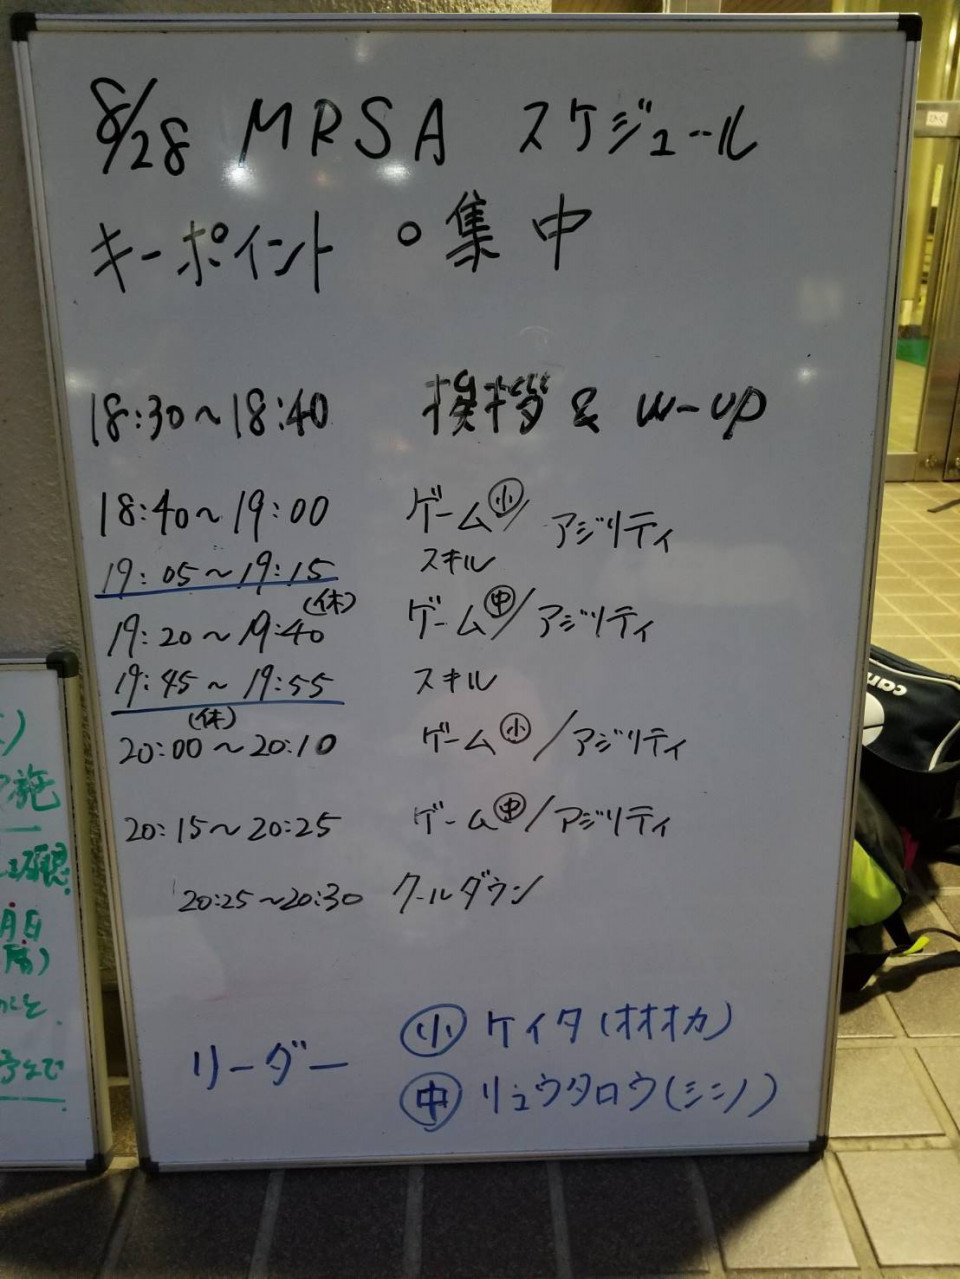 8/28 MRSA スケジュール
キーポイント ○集中
18:30～18:40 挨拶 & w-up
18:40～19:00 ゲーム㊥/ アジリティ
19:05～19:15 スキル
(休)
19:20～19:40 ゲーム㊥/アジリティ
19:45～19:55 スキル
(休)
20:00～20:10 ゲーム小/アジリティ
20:15～20:25 ゲーム㊥/アジリティ
20:25～20:30 クールダウン
リーダー
小 ケイタ(オオオカ)
㊥ リュウタロウ(シンノ)
施
月日